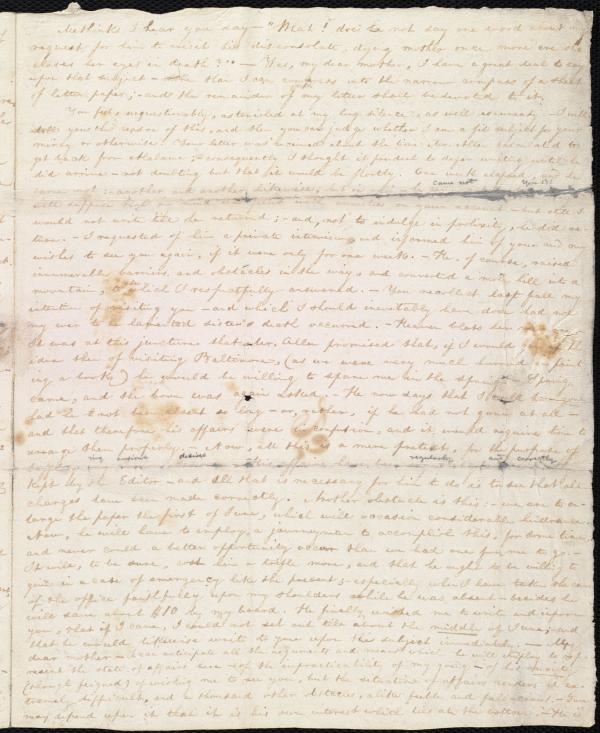 Methinks I hear you say — "What! does he not say one word about my
request for him to visit his disconsolate, dying mother once more ere she
closes her eyes in death?" — Yes, my dear mother, I have a great deal to say
upon that subject — more than I can compress into the narrow compass of a sheet
of letter paper; and the remainder of my letter shall be devoted to it.
You felt, unquestionably, astonished at my long silence, as well as uneasy — I will
tell you the reason of this, and then you can judge whether I am a fit subject for your
mercy or otherwise. Your letter was received about the time Mr. Allen calculated to
get back from Alabama; consequently I thought it prudent to defer writing until he
did arrive — not doubting but that it would be shortly. One week elapsed, he
came not: another and another likewise, but
came not Yes, I
— but still I
would not write till he returned; — and, not to indulge in prolixity, he did re-
turn. — I requested of him a private interview, and informed him of your and my
wishes to see you again, if it were only for one week. — He, of course, raised
innumerable barriers and obstacles in the way, and converted a mole hill into a
mountain, to which I respectfully answered. — You recollect last fall my
intention of visiting you — and which I should inevitably have done had not
my ever to be lamented sister's death occurred. — Heaven bless her
It was at this juncture that Mr. Allen promised that, if I would
idea then of visiting Baltimore, (as we were very much hurried in print-
ing a book) he would be willing to spare me in the spring. Spring
came, and the boon was asked. — He now says that I could have gone
had he not been absent so long — or, rather, if he had not gone at all —
and that therefore his affairs were in confusion, and it would require time to
arrange them properly. — Now, all this is a mere pretext, for the purpose of
my desires regularly and correctly
kept by the Editor — and all that is necessary for him to do is to see that all
charges have been made correctly. Another obstacle is this: — we are to en-
large the paper the first of June, which will occasion considerable hindrance.
Now, he will have to employ a journeyman to accomplish this, for some time,
and never could a better opportunity occur than we had one for me to go —
It will, to be sure, cost him a trifle more, and that he ought to be willing to
give in a case of emergency like the present; especially when I have taken the care
of the office faithfully upon my shoulders while he was absent — besides he
will save about $10 by my board. He finally wished me to write and inform
you, that if I came, I could not set out till about the middle of June; and
that he would likewise write to you upon the subject immediately. — My
dear mother, I can anticipate all the arguments and means which he will employ to rep-
resent the state of affairs here — of the impracticability of my going — of his
(though feigned) of wishing me to see you, but the situation of affairs renders it ex-
tremely difficult, and a thousand other obstacles, alike futile and fallacious. — You
may depend upon it that it is his own interest which lies at the bottom. — He is